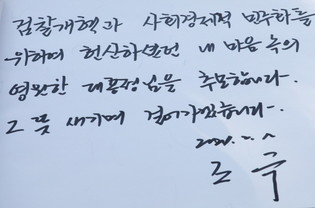 검찰개혁과 사회경제적 민주화를
위하여 헌신하셨던 내 마음 속의
영원한 대통령님을 추모합니다.
그 뜻 새기며 걸어가겠습니다.
조 국